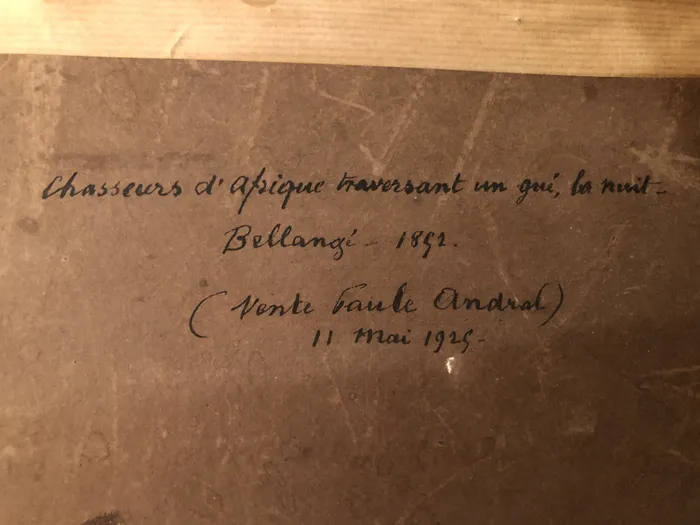 Chasseurs d'Afrique traversant un gué, la nuit -
Bellangé - 1852.
(Vente Paule Andral)
11 Mai 1925 -